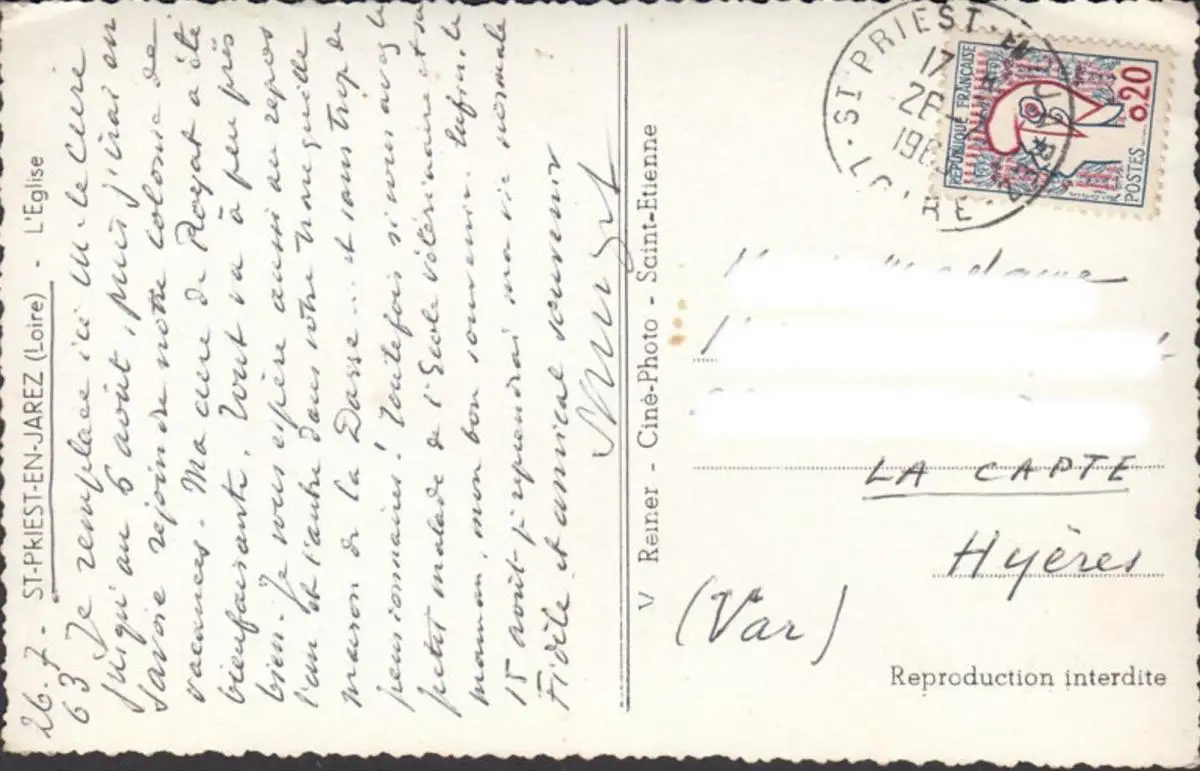 ST-PRIEST-EN-JAREZ (Loire) - L'Eglise
26-7-
63
Je remplace ici M. le Curé
jusqu'au 6 août, puis j'irai en
Savoie rejoindre notre colonie de
vacances. Ma cure de Royat a été
bienfaisante. Tout va à peu près
bien. Je vous espère aussi au repos
l'un et l'autre dans votre tranquille
maison de la Dasse... et sans trop de
pensionnaires! Toutefois si vous avez le
petit malade de l'Ecole vétérinaire et sa
maman, mon bon souvenir. Enfin le
15 août je reprendrai ma vie normale
Fidèle et amical souvenir
V Reiner - Ciné-Photo - Saint-Etienne
ST PRIEST EN
17
26
196
LOIRE
REPUBLIQUE FRANÇAISE
0,20
POSTES
Madame
LA CAPTE
Hyères
(Var)
Reproduction interdite